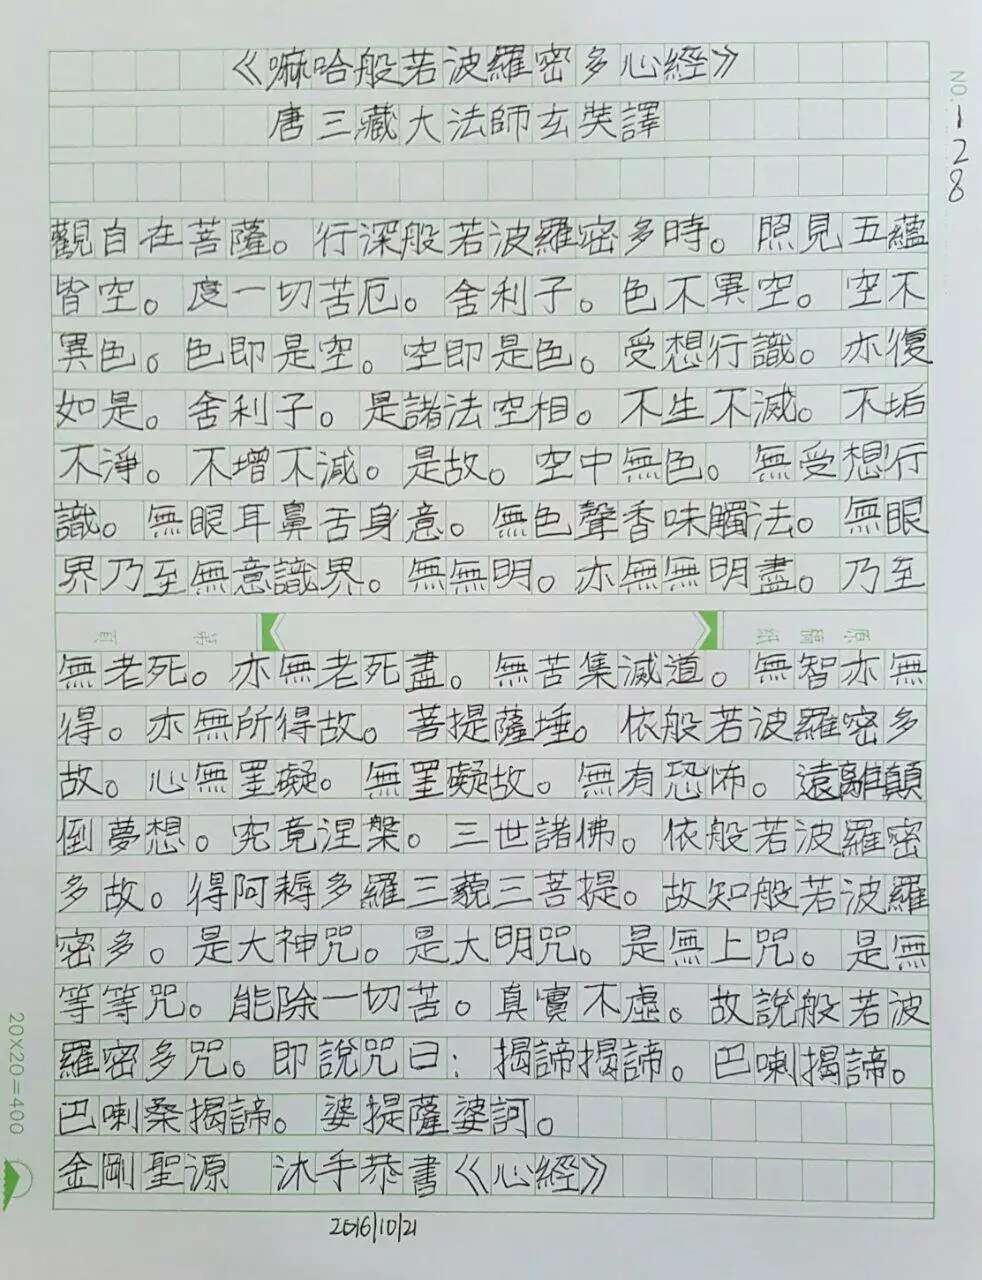 《嘛哈般若波羅密多心經》
唐三藏大法師玄奘譯
NO.128
觀自在菩薩。行深般若波羅密多時。照見五蘊
皆空。度一切苦厄。舍利子。色不異空。空不
異色。色即是空。空即是色。受想行識。亦復
如是。舍利子。是諸法空相。不生不滅。不垢
不淨。不增不減。是故。空中無色。無受想行
識。無眼耳鼻舌身意。無色聲香味觸法。無眼
界乃至無意識界。無無明。亦無無明盡。乃至
頁 第 原稿紙
無老死。亦無老死盡。無苦集滅道。無智亦無
得。亦無所得故。菩提薩埵。依般若波羅密多
故。心無罣礙。無罣礙故。無有恐怖。遠離顛
倒夢想。究竟涅槃。三世諸佛。依般若波羅密
多故。得阿耨多羅三藐三菩提。故知般若波羅
密多。是大神咒。是大明咒。是無上咒。是無
等等咒。能除一切苦。真實不虛。故說般若波
羅密多咒。即說咒曰：揭諦揭諦。巴喇揭諦。
巴喇桑揭諦。婆提薩婆訶。
金剛聖源 沐手恭書《心經》
20X20=400
2016/10/21